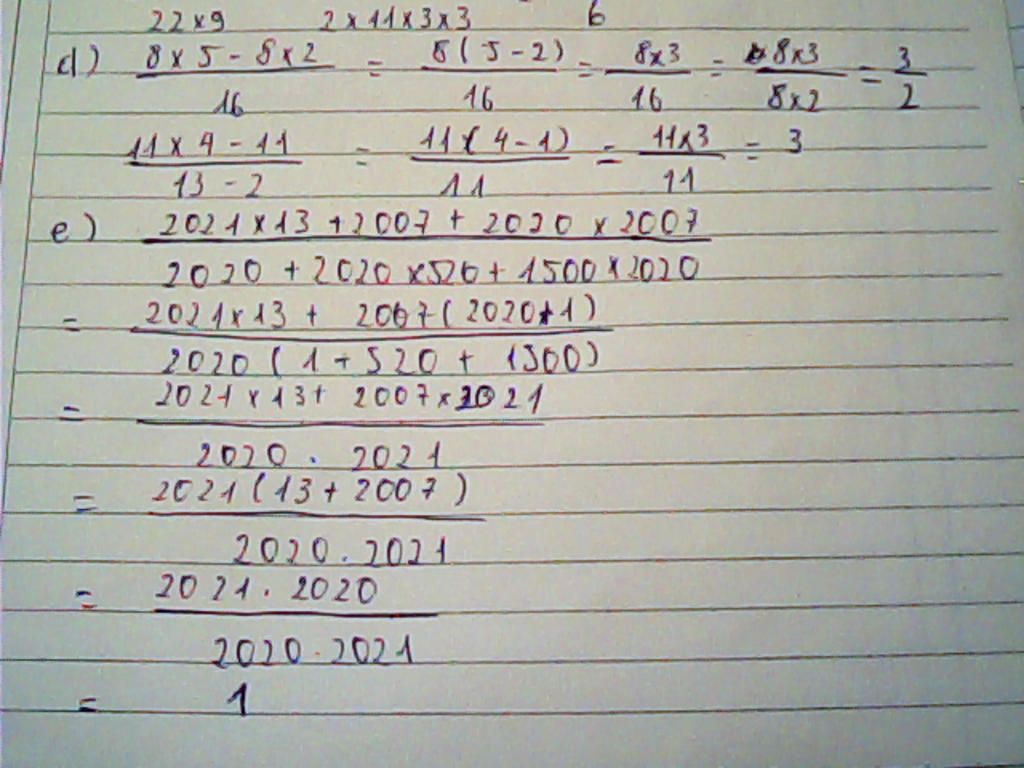 22 x 9 2 x 11 x 3 x 3 6
d) 8 x 5 - 8 x 2 / 16 = 8 ( 5 - 2 ) / 16 = 8 x 3 / 16 = 8 x 3 / 8 x 2 = 3 / 2
11 x 4 - 11 / 13 - 2 = 11 ( 4 - 1 ) / 11 = 11 x 3 / 11 = 3
e) 2021 x 13 + 2007 + 2020 x 2007
2020 + 2020 x 520 + 1500 x 2020
= 2021 x 13 + 2007 ( 2020 + 1 )
2020 ( 1 + 520 + 1500 )
= 2021 x 13 + 2007 x 2021
2020 . 2021
= 2021 ( 13 + 2007 )
2020 . 2021
= 2021 . 2020
2020 . 2021
= 1